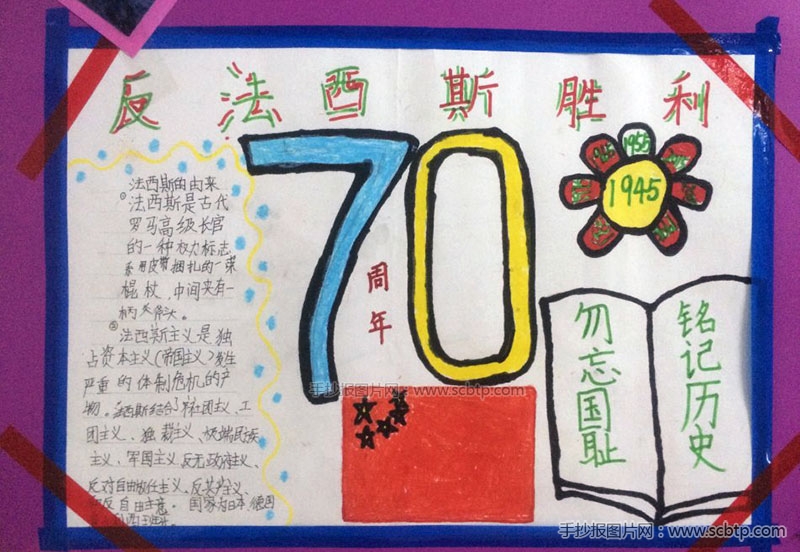 反法西斯胜利
70
周年
1955
1945
勿忘国耻
铭记历史
法西斯的由来
①法西斯是古代
罗马高级长官
的一种权力标志
系用皮带捆扎的一束
棍杖,中间夹有一
柄斧头。
②法西斯主义是独
占资本主义(帝国主义)发生
严重的体制危机的产
物。法西斯结合社团主义、工
团主义、独裁主义、极端民族
主义、军国主义、反无政府主义、
反对自由放任主义、反共产主义、
反自由主意。国家为日本、德国
手抄报图片网:www.scbtp.com
手抄报图片网:www.scbtp.com